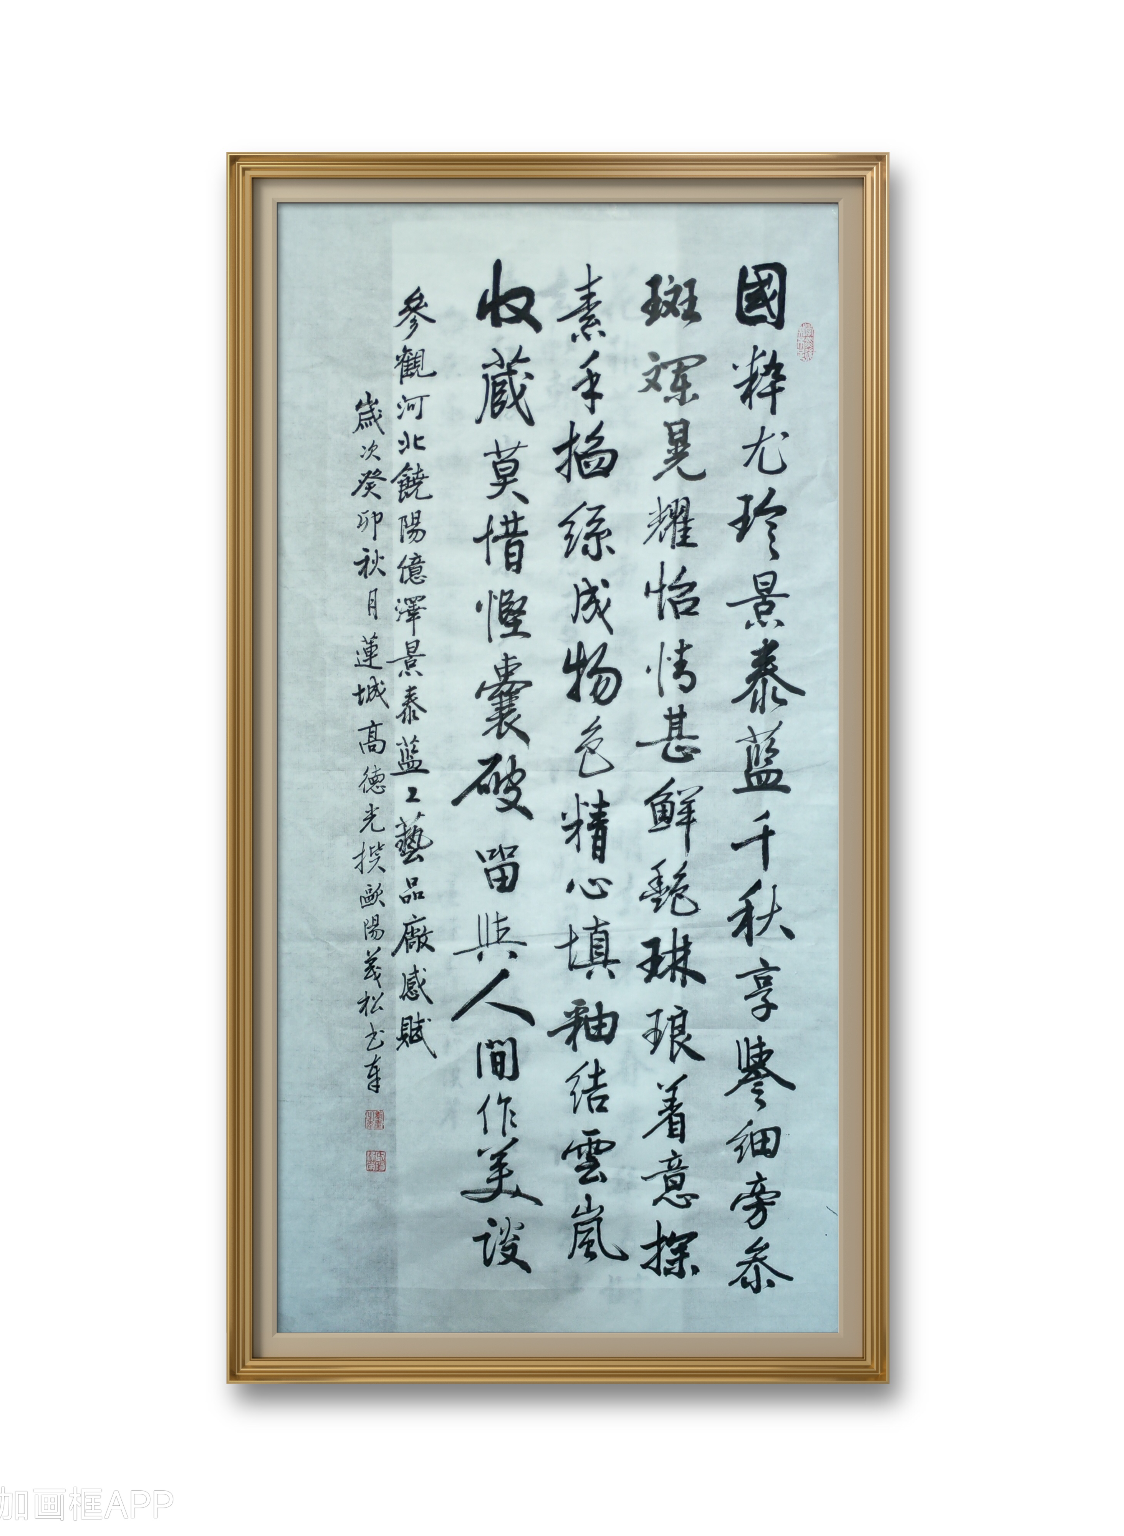 國粹尤珍景泰藍千秋享譽細旁叅
斑斕晃耀怡情甚鮮艷琳琅着意探
素手掐絲成物色精心填釉結雲嵐
收藏莫惜慳囊破留與人間作美談
參觀河北饒陽億澤景泰藍工藝品廠感賦
歲次癸卯秋月蓮城高德光撰歐陽義松书奉
加画框APP